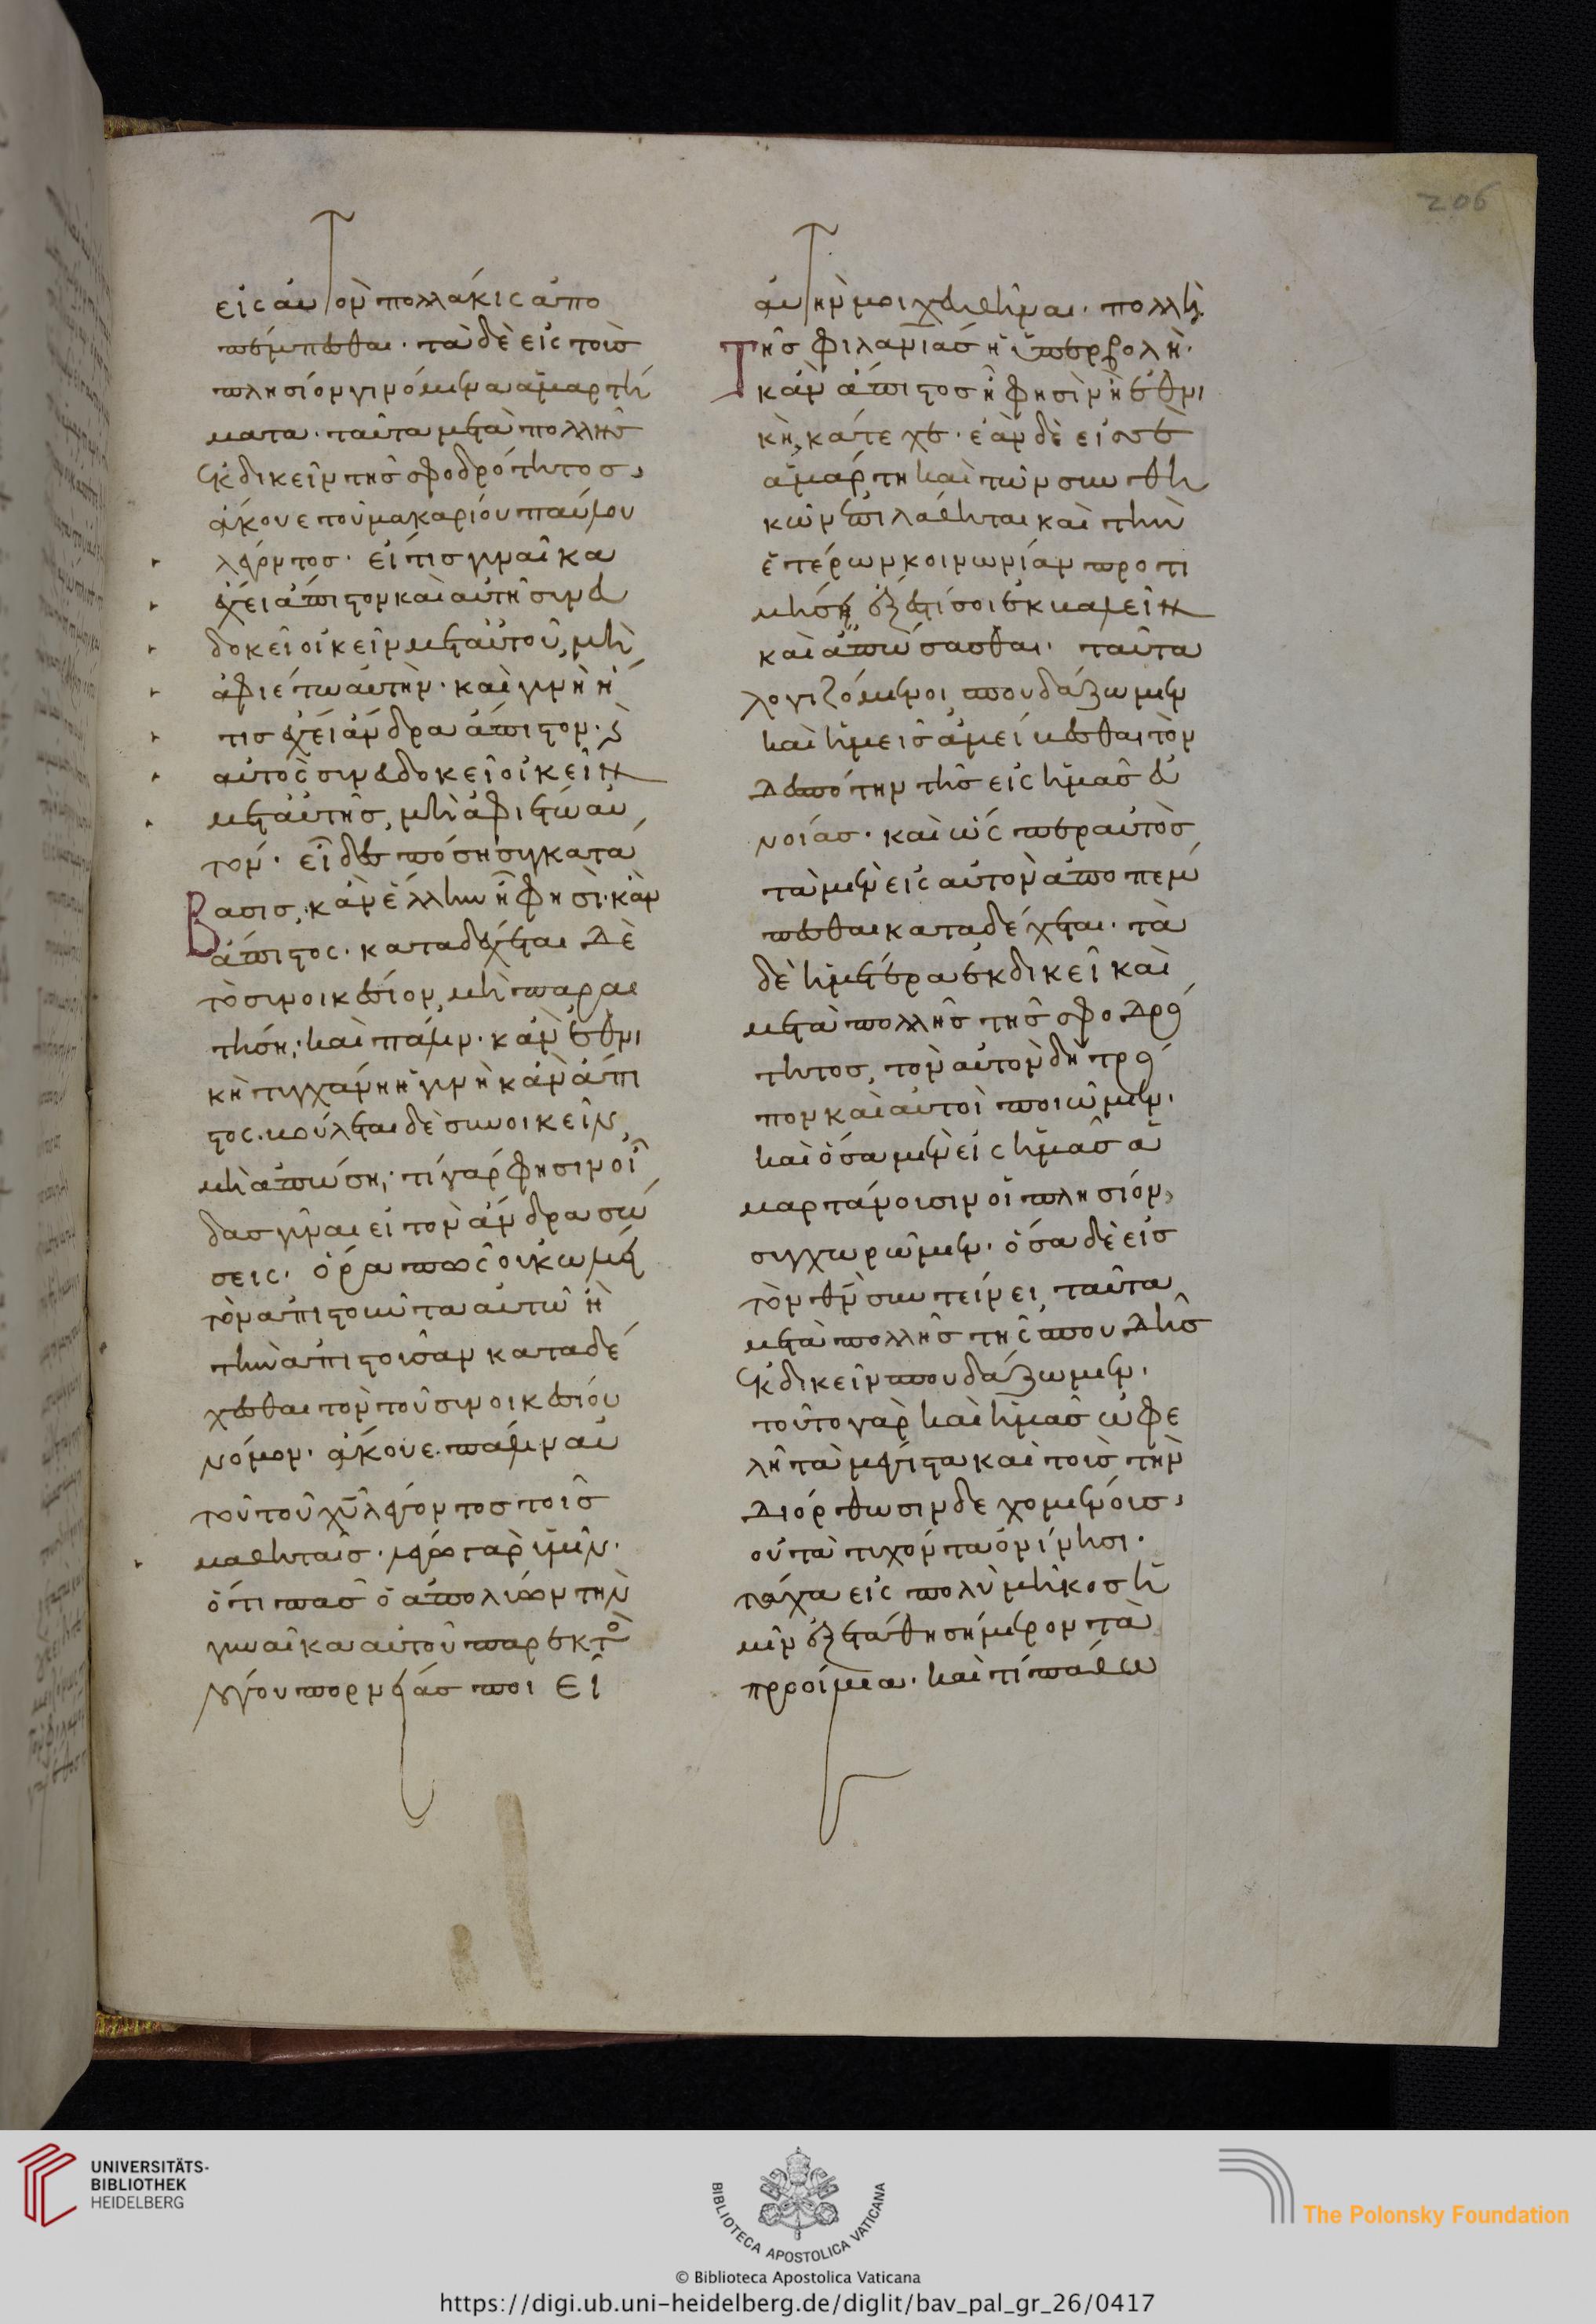 206
εἰς αὐτὸν πολλάκις ἀπο
πέμπεσθαι· τὰ δὲ εἰς τοὺς
πλησίον γινόμενα ἁμαρτή
ματα· ταῦτα μετὰ πολλῆς
ἐκδικεῖν τῆς σφοδρότητος,
ἄκουε τοῦ μακαρίου παύλου
λέγοντος· εἴ τις γυναῖκα
ἔχει ἄπιστον καὶ αὐτὴ συνευ
δοκεῖ οἰκεῖν μετ αὐτοῦ, μὴ
ἀφιέτω αὐτήν· καὶ γυνὴ ἥ
τις ἔχει ἄνδρα ἄπιστον· καὶ
αὐτὸς συνευδοκεῖ οἰκεῖν
μετ αὐτῆς, μὴ ἀφιέτω αὐ
τόν· εἶδες πόση συγκατά
βασις, κἂν ἕλλην ᾖ φησὶ· κἂν
ἄπιστος· καταδέχεται δὲ
τὸ συνοικέσιον, μὴ παραι
τήσῃ· καὶ πάλιν· κἂν ἐθνι
κὴ τυγχάνῃ ἡ γυνὴ κἂν ἄπι
στος· βούλεται δὲ συνοικεῖν,
μὴ ἀπώσῃ· τί γάρ φησιν οἶ
δας γύναι εἰ τὸν ἄνδρα σώ
σεις· ὅρα πῶς οὐ κωλύει
τὸν ἀπιστοῦντα αὐτῶ ἢ
τὴν ἀπιστοῦσαν καταδέ
χεσθαι τὸν τοῦ συνοικεσίου
νόμον· ἄκουε πάλιν αὐ
τοῦ τοῦ χυ λέγοντος τοῖς
μαθηταῖς· λέγω γὰρ ὑμῖν·
ὅτι πᾶς ὁ ἀπολύων τὴν
γυναῖκα αὐτοῦ παρεκτὸς
λόγου πορνείας ποιεῖ
αὐτὴν μοιχευθῆναι· πολλὴ
τῆς φιλανίας ἡ ὑπερβολή·
κἂν ἄπιστος ᾖ φησὶν ἢ ἐθνι
κὴ, κάτεχε· ἐὰν δὲ εἰς σὲ
ἁμάρτῃ καὶ τῶν συνθη
κῶν ἐπιλάθηται καὶ τὴν
ἑτέρων κοινωνίαν προτι
μήσῃ, ἔξεστί σοι ἐκβαλεῖν
καὶ ἀπώσασθαι· ταῦτα
λογιζόμενοι σπουδάζωμεν
καὶ ἡμεῖς ἀμείβεσθαι τὸν
δεσπότην τῆς εἰς ἡμᾶς εὐ
νοίας· καὶ ὥσπερ αὐτὸς
τὰ μὲν εἰς αὐτὸν ἀποπεμ
πεσθαι καταδέχεται· τὰ
δὲ ἡμέτερα ἐκδικεῖ καὶ
μετὰ πολλῆς τῆς σφοδρό
τητος, τὸν αὐτὸν δὴ τρό
πον καὶ αὐτοὶ ποιῶμεν·
καὶ ὅσα μὲν εἰς ἡμᾶς ἁ
μαρτάνουσιν οἱ πλησίον,
συγχωρῶμεν· ὅσα δὲ εἰς
τὸν θν συντείνει, ταῦτα
μετὰ πολλῆς τῆς σπουδῆς
ἐκδικεῖν σπουδάζωμεν·
τοῦτο γὰρ καὶ ἡμᾶς ὠφε
λῆ τὰ μέγιστα καὶ τοὺς τὴν
διόρθωσιν δεχομένους,
οὐ τὰ τυχόντα ὀνίνησι·
τάχα εἰς πολὺ μῆκος ἡ
μῖν ἐξετάθη σήμερον τὰ
προοίμια· καὶ τί πάθω
UNIVERSITÄTS-
BIBLIOTHEK
HEIDELBERG
BIBLIOTECA APOSTOLICA VATICANA
The Polonsky Foundation
© Biblioteca Apostolica Vaticana
https://digi.ub.uni-heidelberg.de/diglit/bav_pal_gr_26/0417